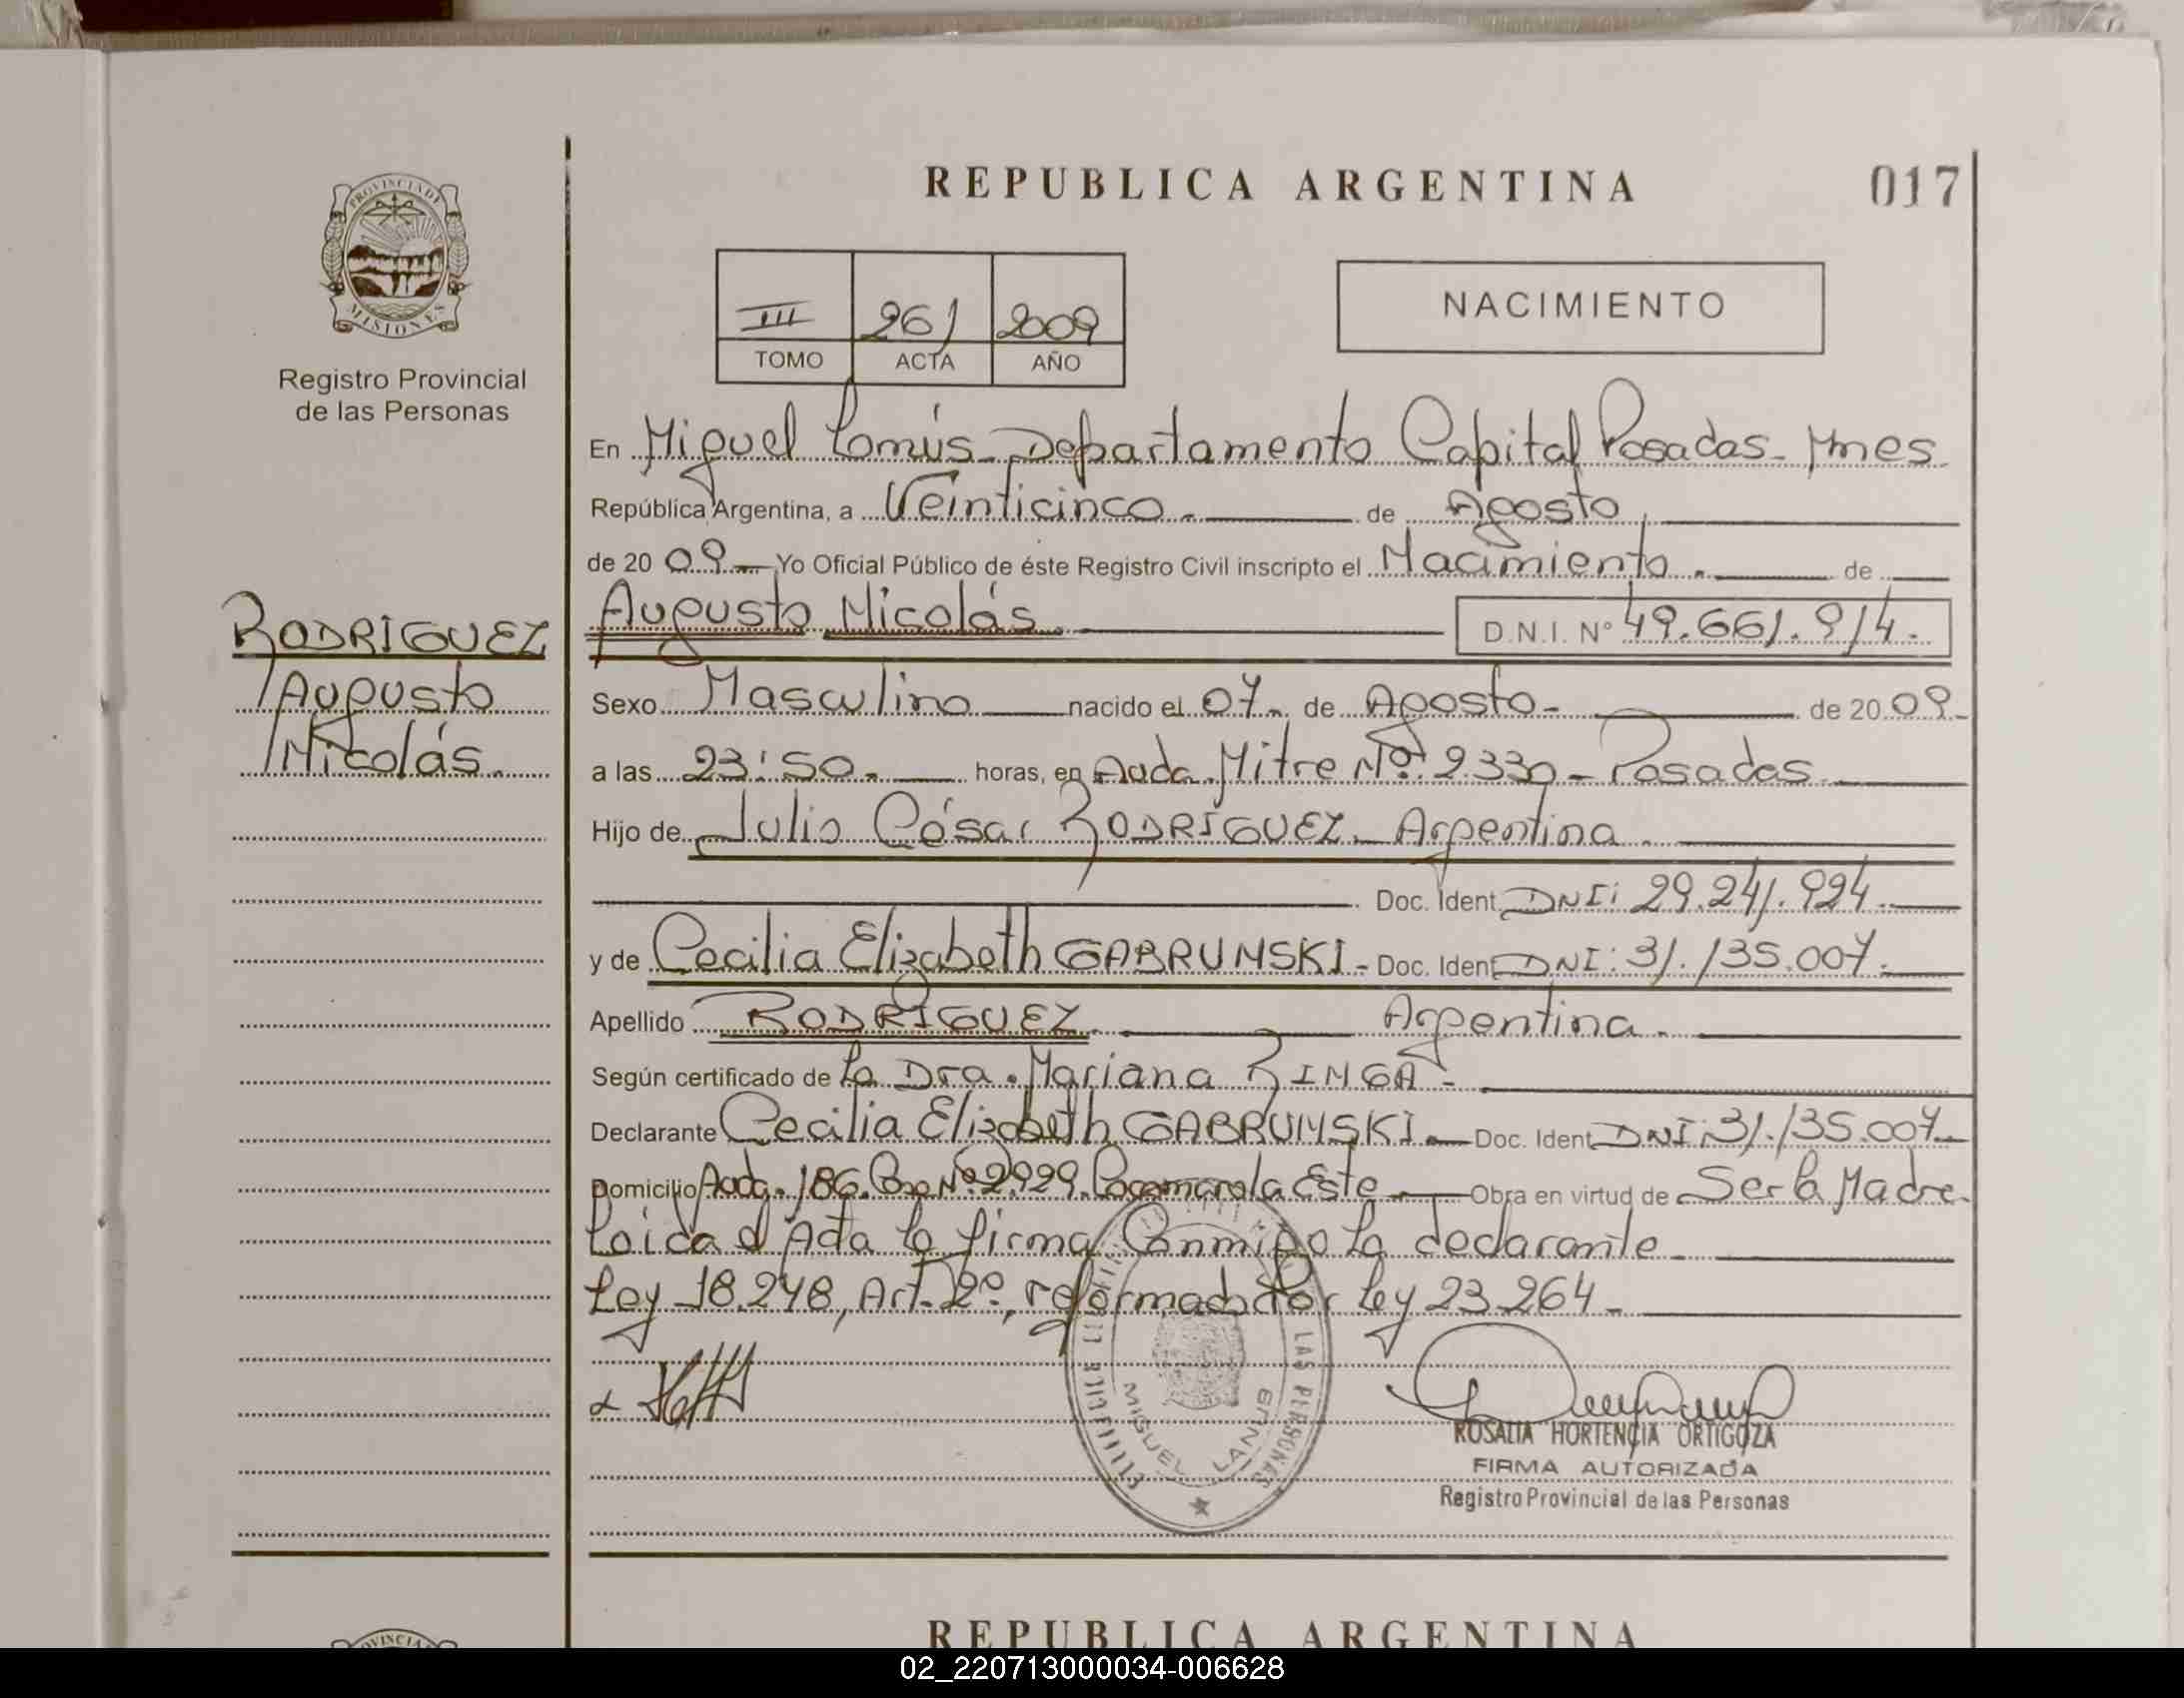 REPUBLICA ARGENTINA
017
PROVINCIA DE
MISIONES
Registro Provincial
de las Personas
III 261 2009
TOMO ACTA AÑO
NACIMIENTO
En Miguel Lanús - Departamento Capital Posadas - Mnes
República Argentina, a Veinticinco - de Agosto
de 20 09 - Yo Oficial Público de éste Registro Civil inscripto el Nacimiento - de
Augusto Nicolás - D.N.I. Nº 49.661.914.
RODRIGUEZ
Augusto
Nicolás.
Sexo Masculino nacido el 07 - de Agosto - de 20 09 -
a las 23:50 - horas, en Avda. Mitre Nº 2330 - Posadas
Hijo de Julio César RODRÍGUEZ - Argentina -
Doc. Ident. DNI: 29.241.924 -
y de Cecilia Elizabeth GABRUNSKI - Doc. Ident. DNI: 31.135.007 -
Apellido RODRÍGUEZ - Argentina -
Según certificado de La Dra. Mariana RINGA -
Declarante Cecilia Elizabeth GABRUNSKI - Doc. Ident. DNI 31.135.007 -
Domicilio Avda. 186. Nº 2929. Cocomarola Este - Obra en virtud de Ser la Madre -
Leída el Acta la firma Conmigo La declarante
Ley 18.248, Art. 2º, reformado Por Ley 23.264 -
LAS PERSONAS
MIGUEL LANUS
ROSALIA HORTENCIA ORTIGOZA
FIRMA AUTORIZADA
Registro Provincial de las Personas
REPUBLICA ARGENTINA
02_220713000034-006628